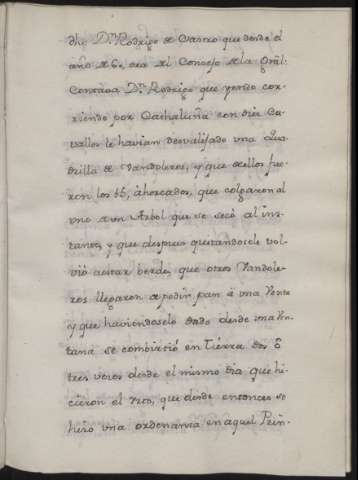 dho Dn. Rodrigo de Castro que desde el
año de 60, era del Consejo de la Gral.
Contava Dn. Rodrigo que yendo cor-
riendo por Cathaluña con diez Ca-
vallos le havian desvalijado una Qua-
drilla de Vandoleros, y que dellos fue-
ron los 15, ahorcados, que colgaron al
uno de un Arbol que se secò al ins-
tante, y que despues quitandosele vol-
viò a estar berde, que otros Vandole-
ros llegaron a pedir pan à una Venta
y que haviendoselo dado desde una Ven-
tana se combirtiò en Tierra dos ô
tres veces desde el mismo dia que hi-
cieron el rovo, que desde entonces se
hizo una ordenanza en aquel Prin-